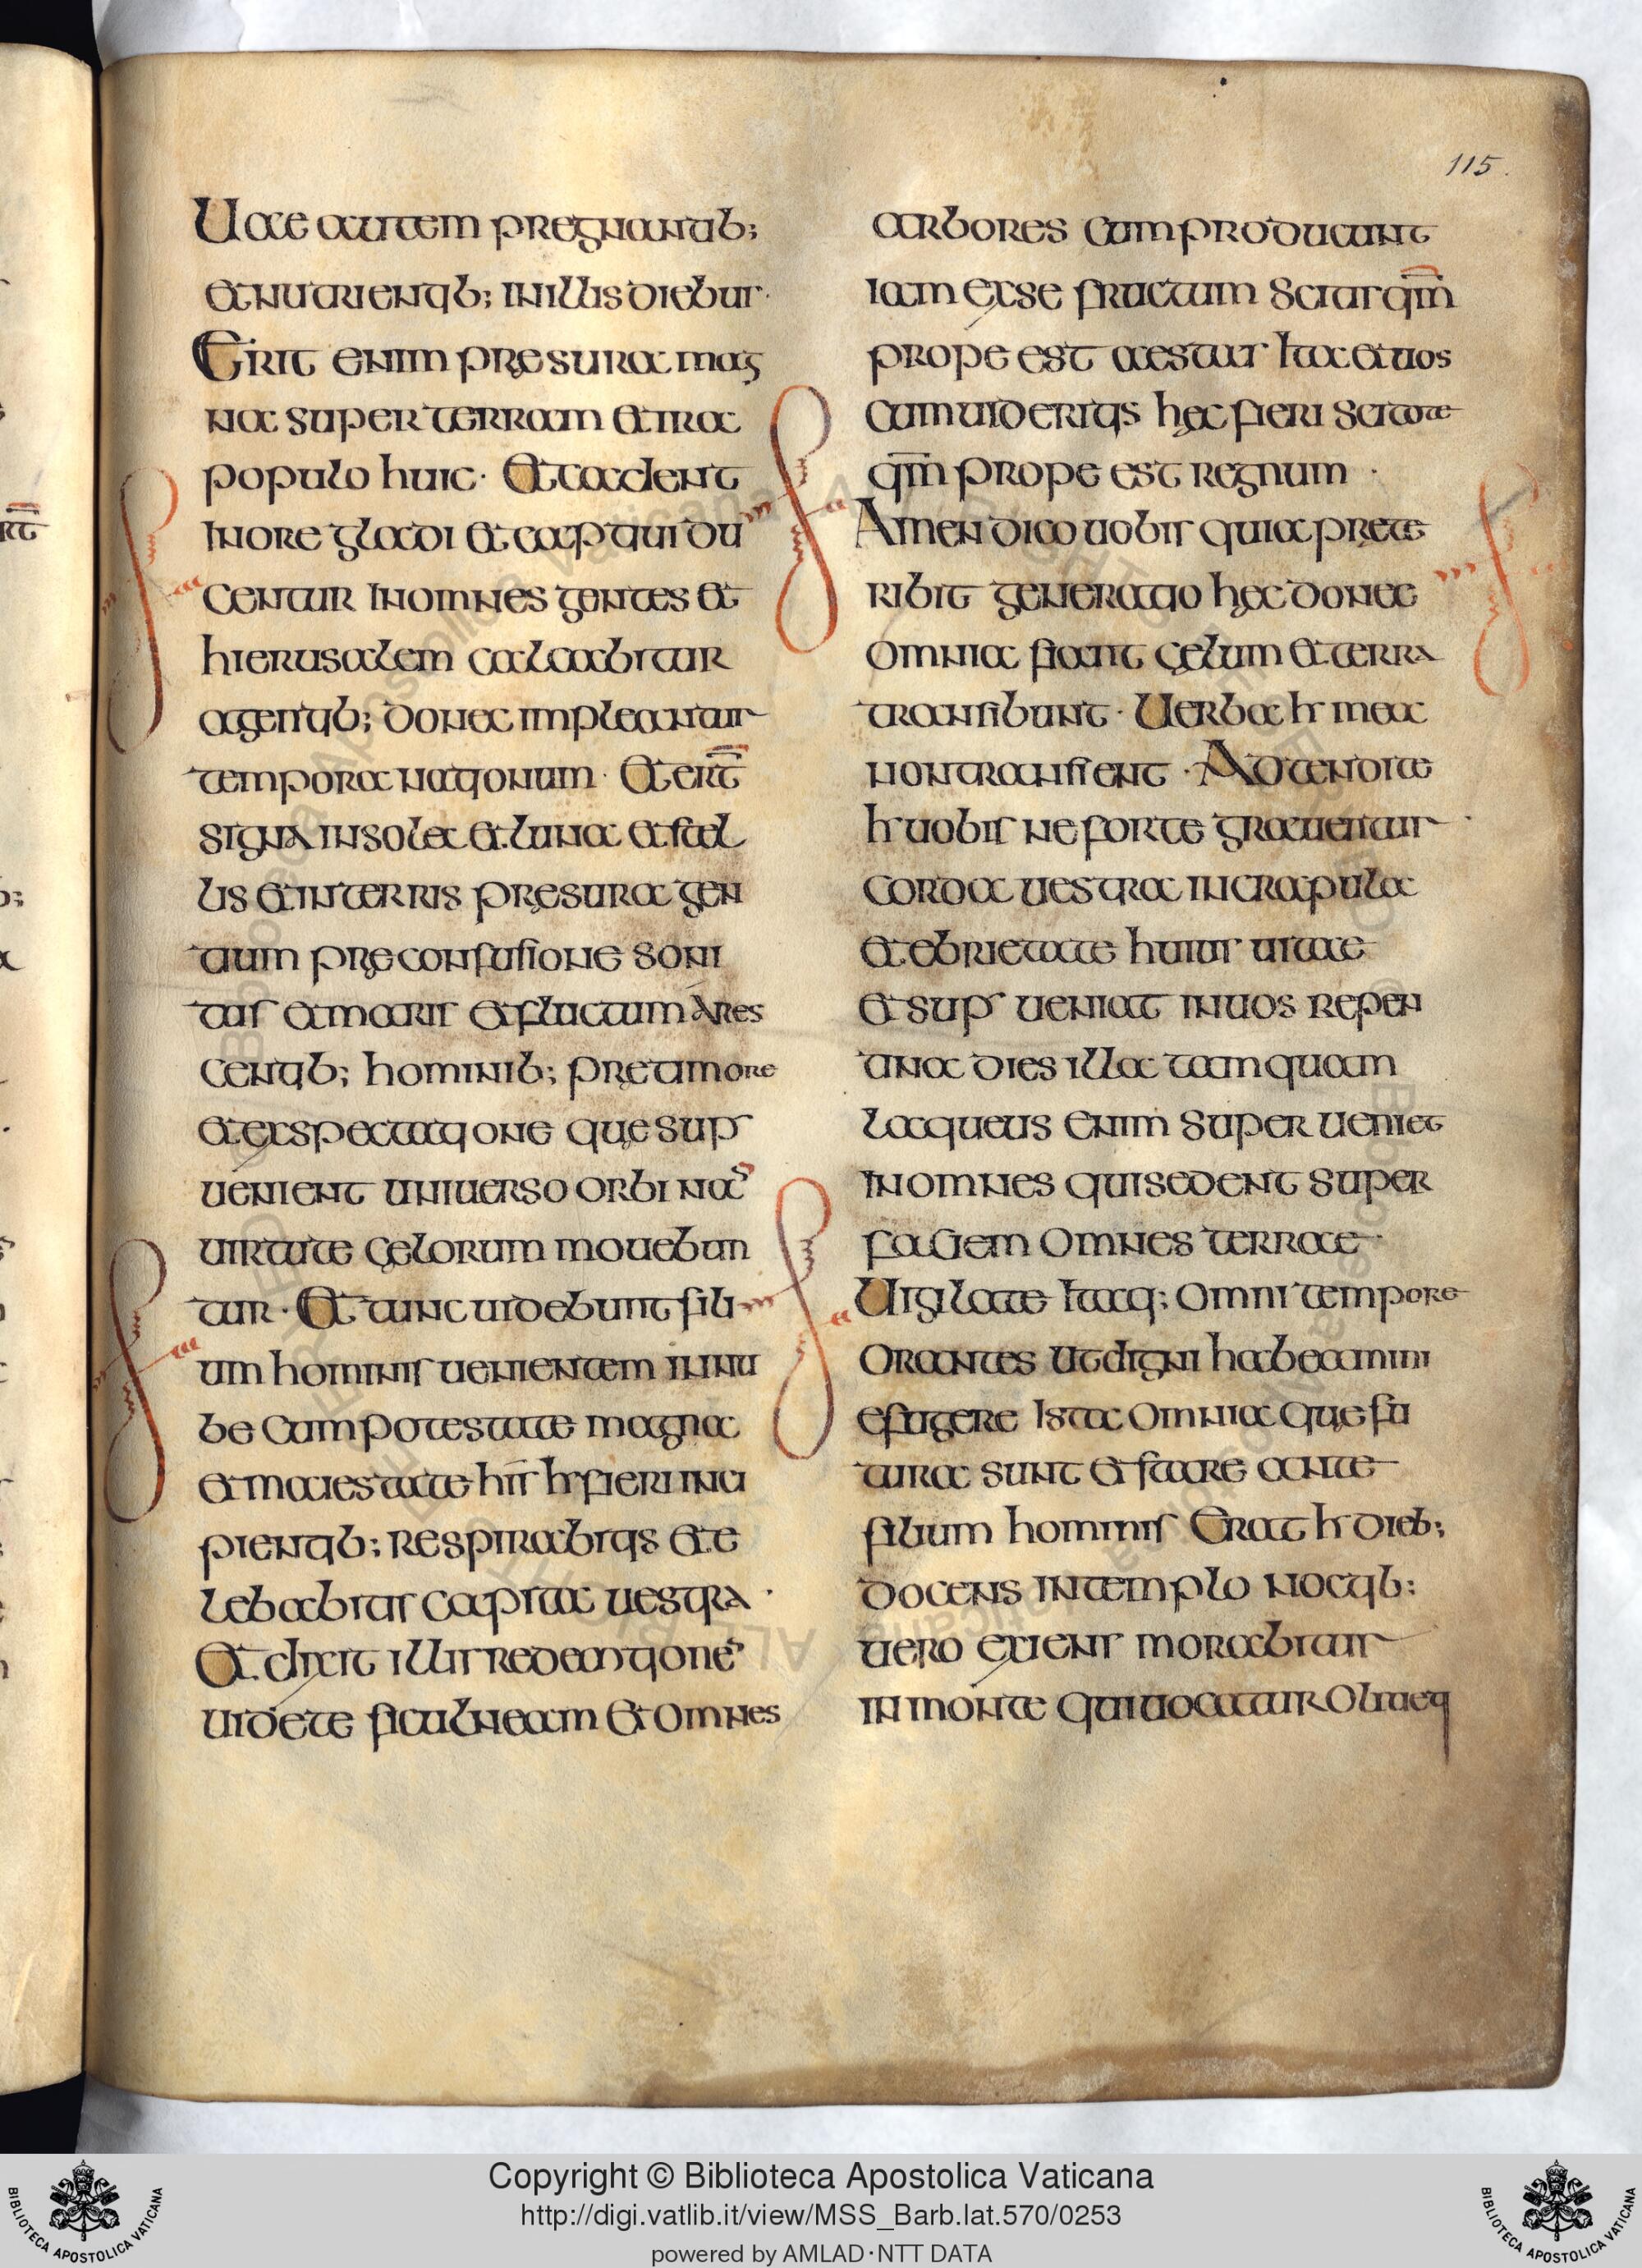 115.
Uae autem pregnantib;
et nutrientib; in illis diebus·
Erit enim pręsura mag
na super terram et ira
populo huic· Et cadent
in ore gladi et captiui du
centur in omnes gentes et
hierusalem calcabitur
a gentib; donec impleantur
tempora nationum· Et er̄t
signa in sole et luna et stel
lis et in terris pręsura gen
tium prę confusione soni
tus et maris et fluctum ares
centib; hominib; prę timore
et expectatione quę sup
uenient uniuerso orbi na
uirtute cęlorum mouebun
tur· Et tunc uidebunt fili
um hominis uenientem in nu
be cum potestate magna
et maiestate his h fieri inci
pientib; respirabitis et e
lebabitis capita uestra·
Et dixit illis redeantione
uidete ficulneam et omnes
arbores cum producunt
iam ex se fructum scitis qm̄
prope est aestas ita et uos
cum uideritis hęc fieri scitote
qm̄ prope est regnum·
Amen dico uobis quia pręte
ribit generatio hęc donec
omnia fiant cęlum et terra
transibunt· Uerba h mea
non transient· Adtendite
h uobis ne forte grauentur·
corda uestra in crapula
et ebrietate huius uitae
et sup ueniat in uos repen
tina dies illa tamquam
laqueus enim super ueniet
in omnes qui sedent super
faciem omnes terrae·
Uigilate itaq; omni tempore
orantes ut digni habeamini
efugere ista omnia quę fu
tura sunt et stare ante
filium hominis Erat h dieb;
docens in templo noctib;
uero exiens morabitur
in monte qui uocatur oliueti
Copyright © Biblioteca Apostolica Vaticana
http://digi.vatlib.it/view/MSS_Barb.lat.570/0253
powered by AMLAD·NTT DATA
BIBLIOTECA APOSTOLICA VATICANA
BIBLIOTECA APOSTOLICA VATICANA